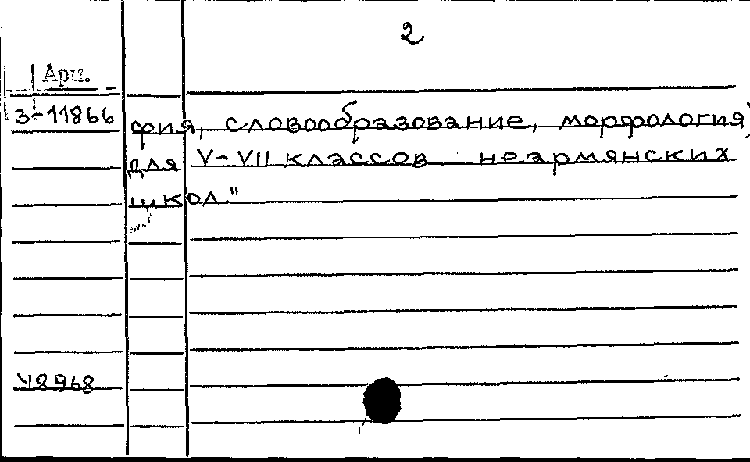 2
Арм.
3-11866
фия, словообразование, морфология)
для V-VII классов неармянских
школ."